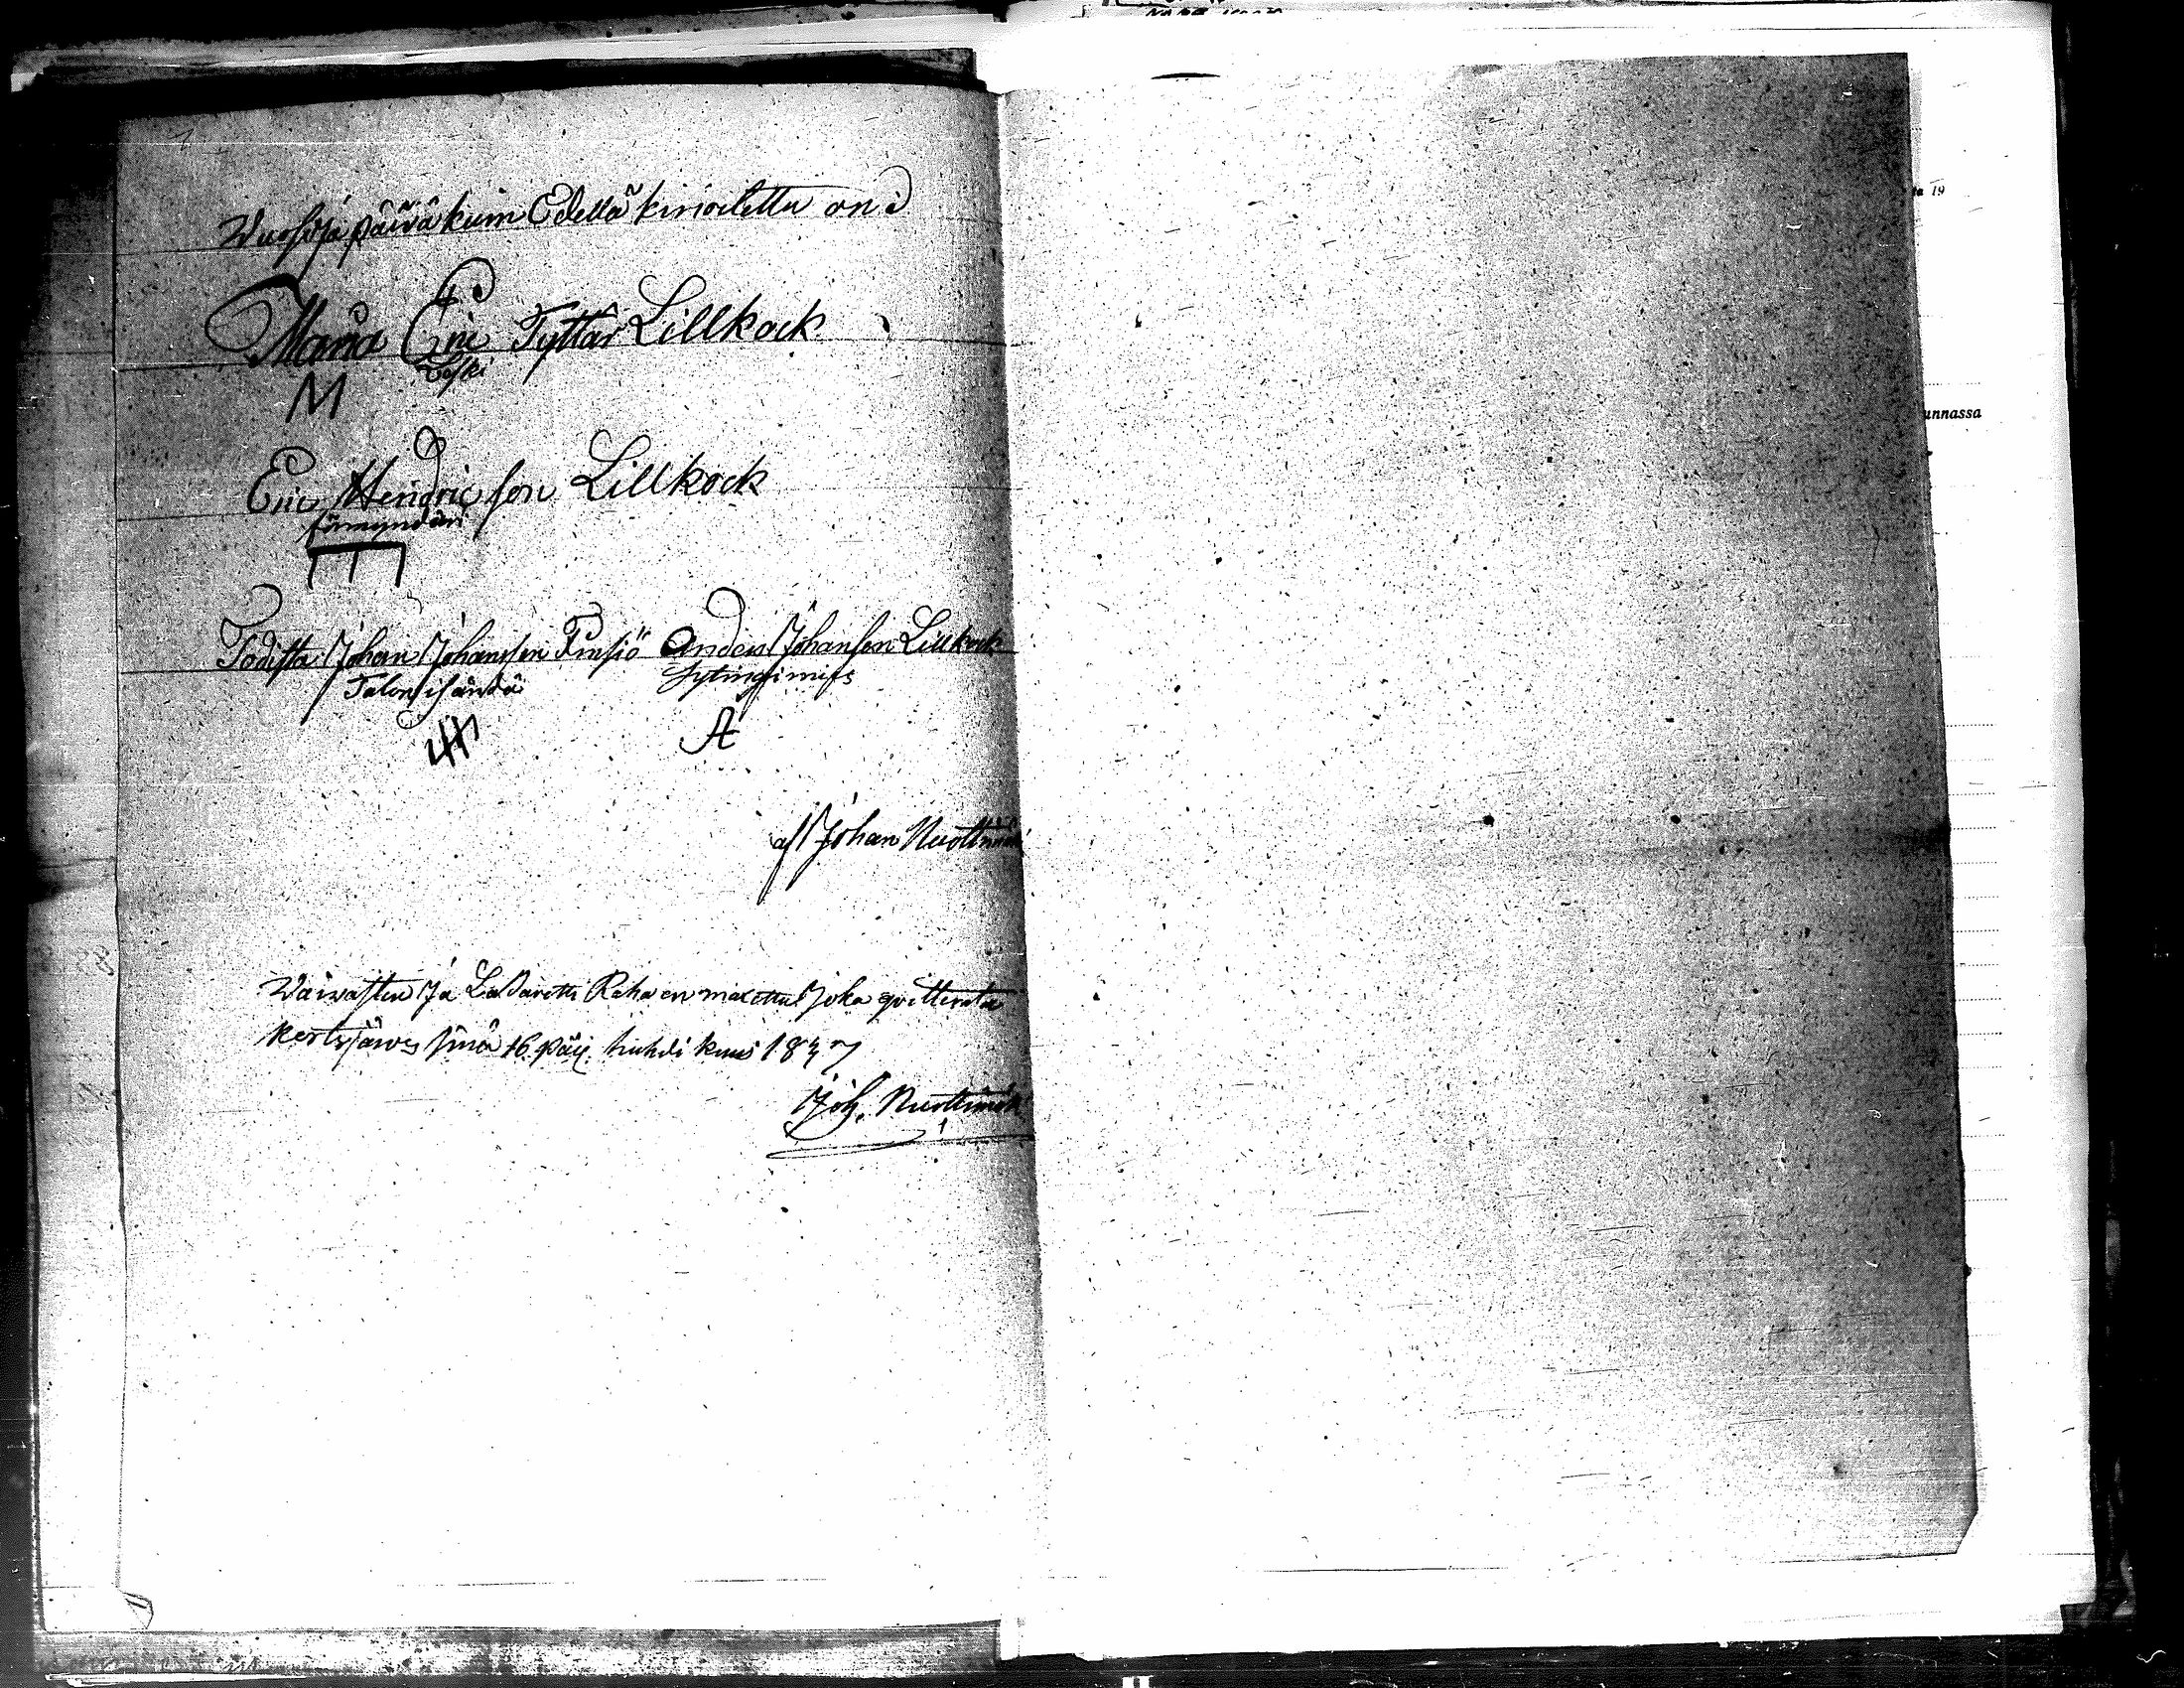 Wuosi ja päivä kuin Edellä kirioitettu on
Maria Eric Tyttär Lillkock
Leski
M
Eric Hendricson Lillkock
förmyndäri
Todista Johan Johansson Pinsiö Anders Johanson Lillkock
Talon isändä Sytingimies
A
af Johan Nuottimäki
Waiwasten Ja Ladaretti Raha on maxettu Joka qvitterata
kertesjärves sinä 16 päiv. huhdi kuus 1847
Joh. Nuottimäk
ta 19
unnassa